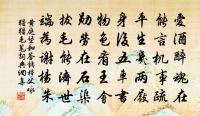 愛酒醉魂在
能言機事疏
平生幾兩屐
身後五車書
物色看王會
勛勞在石渠
拔毛能濟世
端為謝楊朱
黃庭堅和答錢穆父詠
猩猩毛筆詞典網集